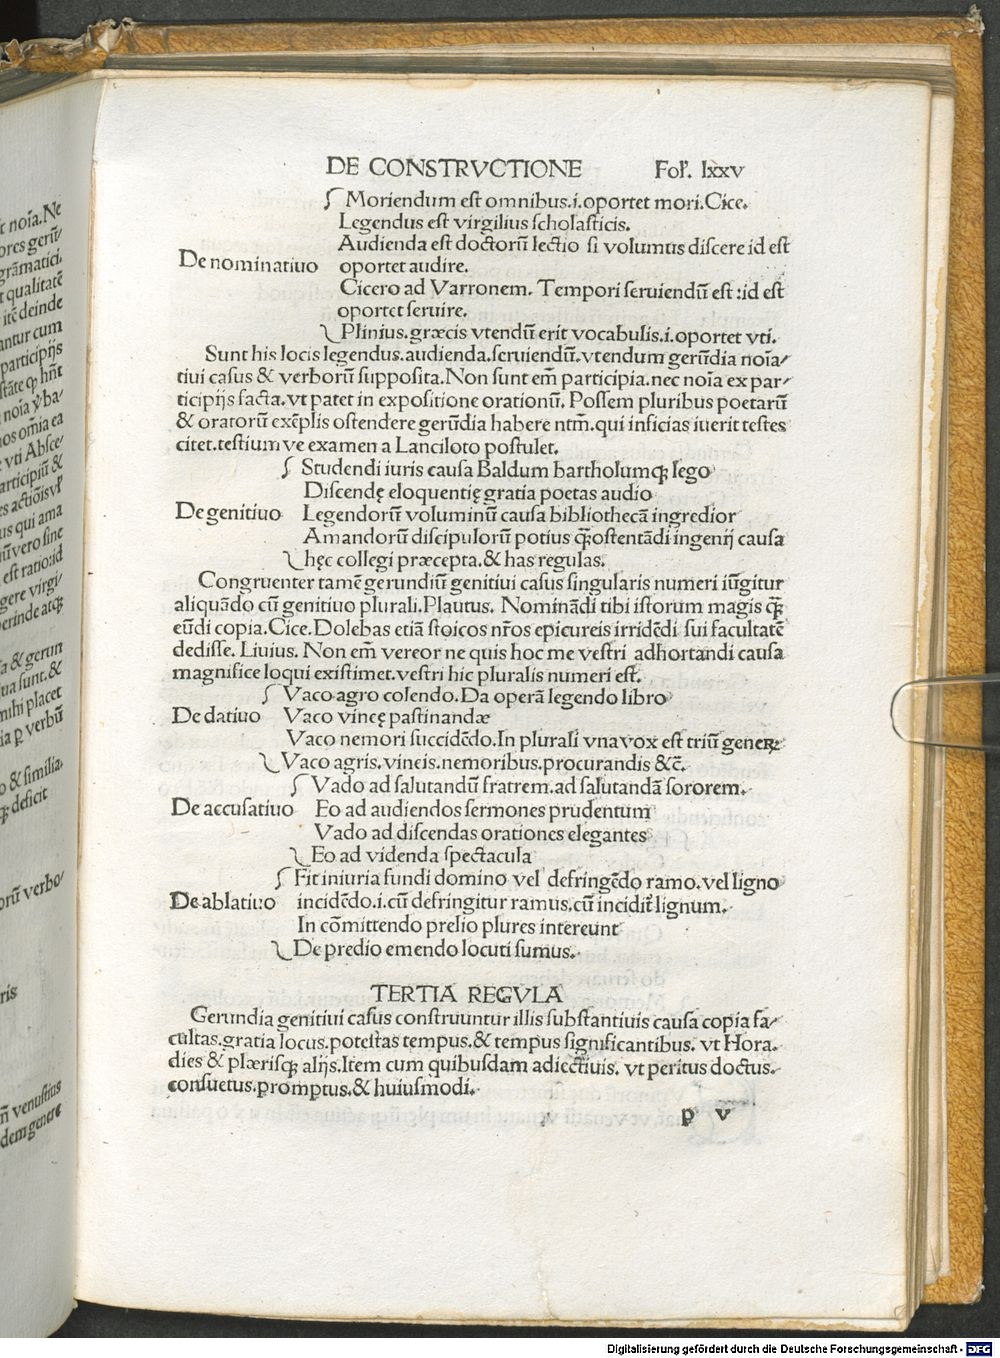 DE CONSTRVCTIONE Fol'. lxxv
Moriendum est omnibus.i.oportet mori.Cice.
Legendus est virgilius scholasticis.
Audienda est doctorū lectio si volumus discere id est
De nominatiuo oportet audire.
Cicero ad Varronem. Tempori seruiendū est :id est
oportet seruire.
Plinius.græcis vtendū erit vocabulis.i.oportet vti.
Sunt his locis legendus.audienda.seruiendū.vtendum gerūdia noīa/
tiui casus & verborū supposita.Non sunt em̄ participia.nec noīa ex par/
ticipijs facta.vt patet in expositione orationū.Possem pluribus poetarū
& oratorū exēplis ostendere gerūdia habere ntm̄.qui inficias iuerit testes
citet.testium ve examen a Lanciloto postulet.
Studendi iuris causa Baldum bartholumqꝫ lego
Discendę eloquentię gratia poetas audio
De genitiuo Legendorū voluminū causa bibliothecā ingredior
Amandorū discipulorū potius q̄ꝫostentādi ingenij causa
hęc collegi præcepta.& has regulas.
Congruenter tamē gerundiū genitiui casus singularis numeri iūgitur
aliquādo cū genitiuo plurali.Plautus. Nominādi tibi istorum magis q̄ꝫ
eūdi copia.Cice.Dolebas etiā stoicos nr̄os epicureis irridēdi sui facultatē
dedisse. Liuius. Non em̄ vereor ne quis hoc me vestri adhortandi causa
magnifice loqui existimet.vestri hic pluralis numeri est.
Vaco agro colendo.Da operā legendo libro
De datiuo Vaco vincę pastinandæ
Vaco nemori succidēdo.In plurali vna vox est triū generꝝ
Vaco agris.vineis.nemoribus.procurandis &c̄.
Vado ad salutandū fratrem.ad salutandā sororem.
De accusatiuo Eo ad audiendos sermones prudentum
Vado ad discendas orationes elegantes
Eo ad videnda spectacula
Fit iniuria fundi domino vel defringēdo ramo.vel ligno
De ablatiuo incidēdo.i.cū defringitur ramus.cū incidit̄ lignum.
In cōmittendo prelio plures intereunt
De predio emendo locuti sumus.
TERTIA REGVLA
Gerundia genitiui casus construuntur illis substantiuis causa copia fa/
cultas.gratia locus.potestas tempus.& tempus significantibus. vt Hora.
dies & plærisqꝫ alijs.Item cum quibusdam adiectiuis. vt peritus doctus.
consuetus.promptus.& huiusmodi.
p v
Digitalisierung gefördert durch die Deutsche Forschungsgemeinschaft - DFG